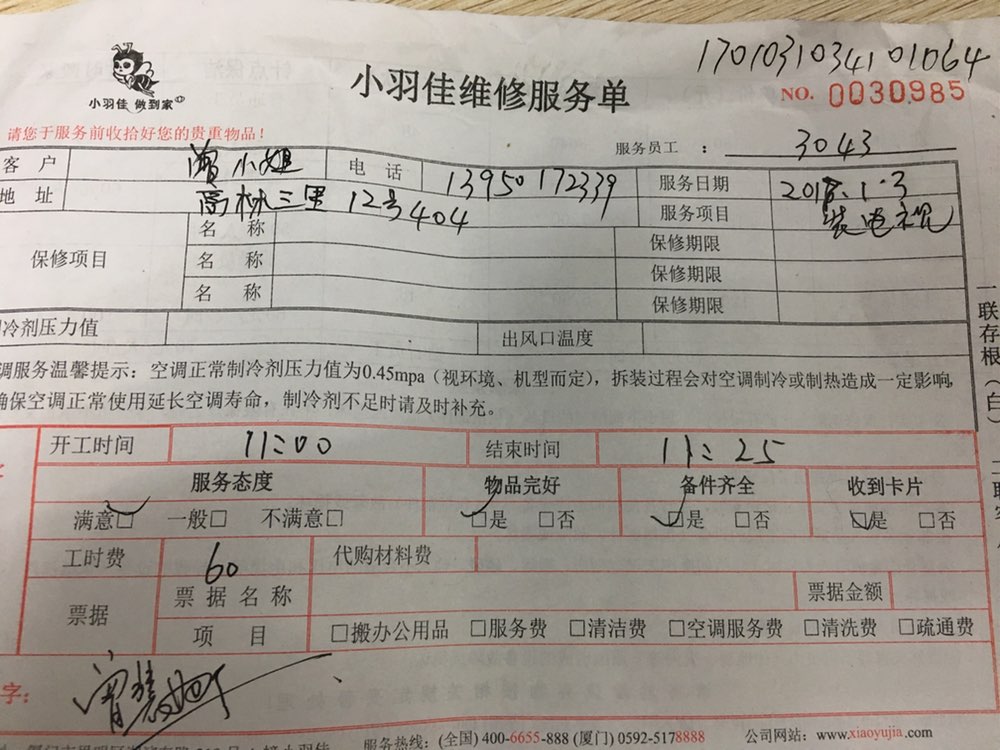 1701031034101064
小羽佳 做到家
小羽佳维修服务单
NO. 0030985
请您于服务前收拾好您的贵重物品！
服务员工： 3043
客 户 曾小姐 电 话 13950172339 服务日期 2018.1.3
地 址 高林三里 12号404 服务项目 装电视
保修项目 名 称 保修期限
名 称 保修期限
名 称 保修期限
冷剂压力值 出风口温度
调服务温馨提示：空调正常制冷剂压力值为0.45mpa（视环境、机型而定），拆装过程会对空调制冷或制热造成一定影响，
确保空调正常使用延长空调寿命，制冷剂不足时请及时补充。
一联存根（白）
开工时间 11:00 结束时间 11:25
服务态度 物品完好 备件齐全 收到卡片
满意□ 一般□ 不满意□ □是 □否 □是 □否 □是 □否
工时费 60 代购材料费
票据 票据名称 票据金额
项 目 □搬办公用品 □服务费 □清洁费 □空调服务费 □清洗费 □疏通费
字：
服务热线：(全国) 400-6655-888 (厦门) 0592-5178888 公司网站：www.xiaoyujia.com